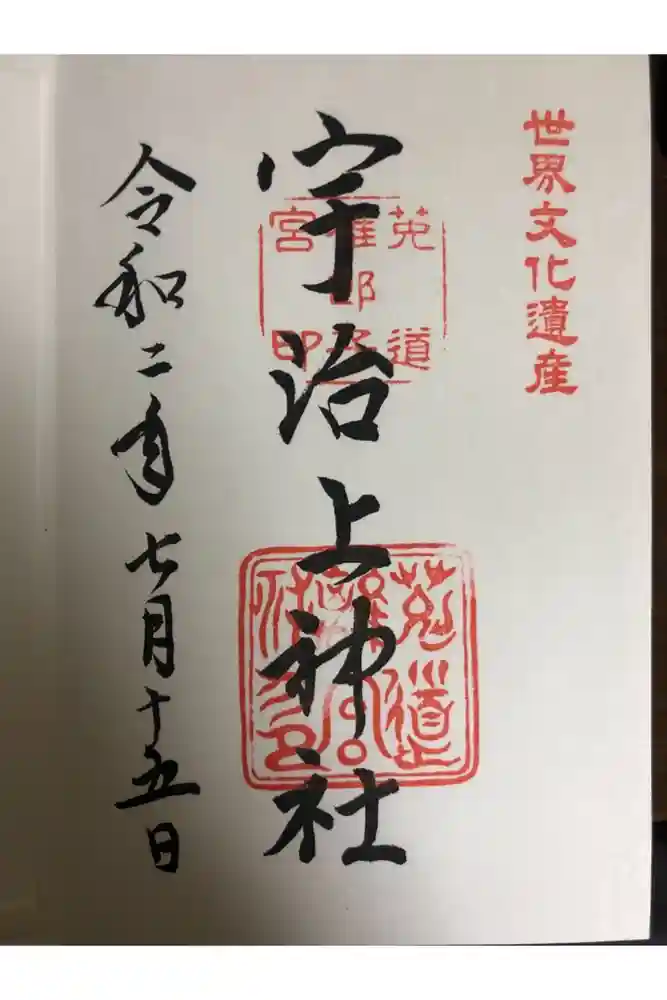 世界文化遺産
宇治上神社
菟道
稚郎子
宮印
令和二年七月十五日